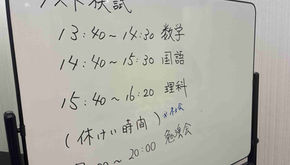 テスト模試
13:40〜14:30 数学
14:40〜15:30 国語
15:40〜16:20 理科
(休けい時間)
〜20:00 勉強会